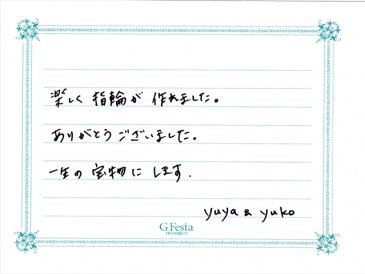 楽しく指輪が作れました。
ありがとうございました。
一生の宝物にします.
yuya & yuko
G.Festa